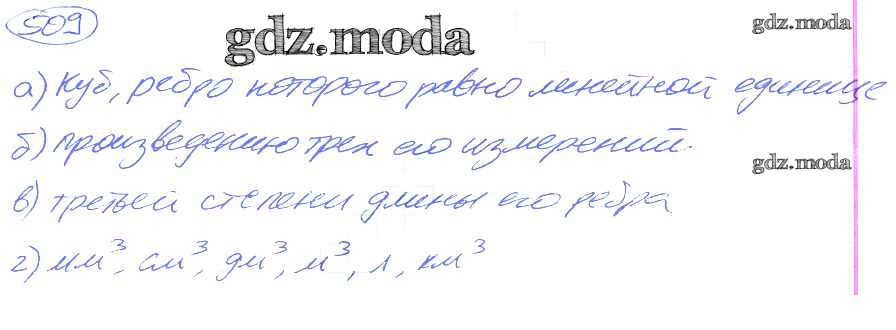 509
gdz.moda
gdz.moda
а) куб, ребро которого равно линейной единице
б) произведению трех его измерений.
gdz.moda
в) третьей степени длины его ребра
г) мм³, см³, дм³, м³, л, км³